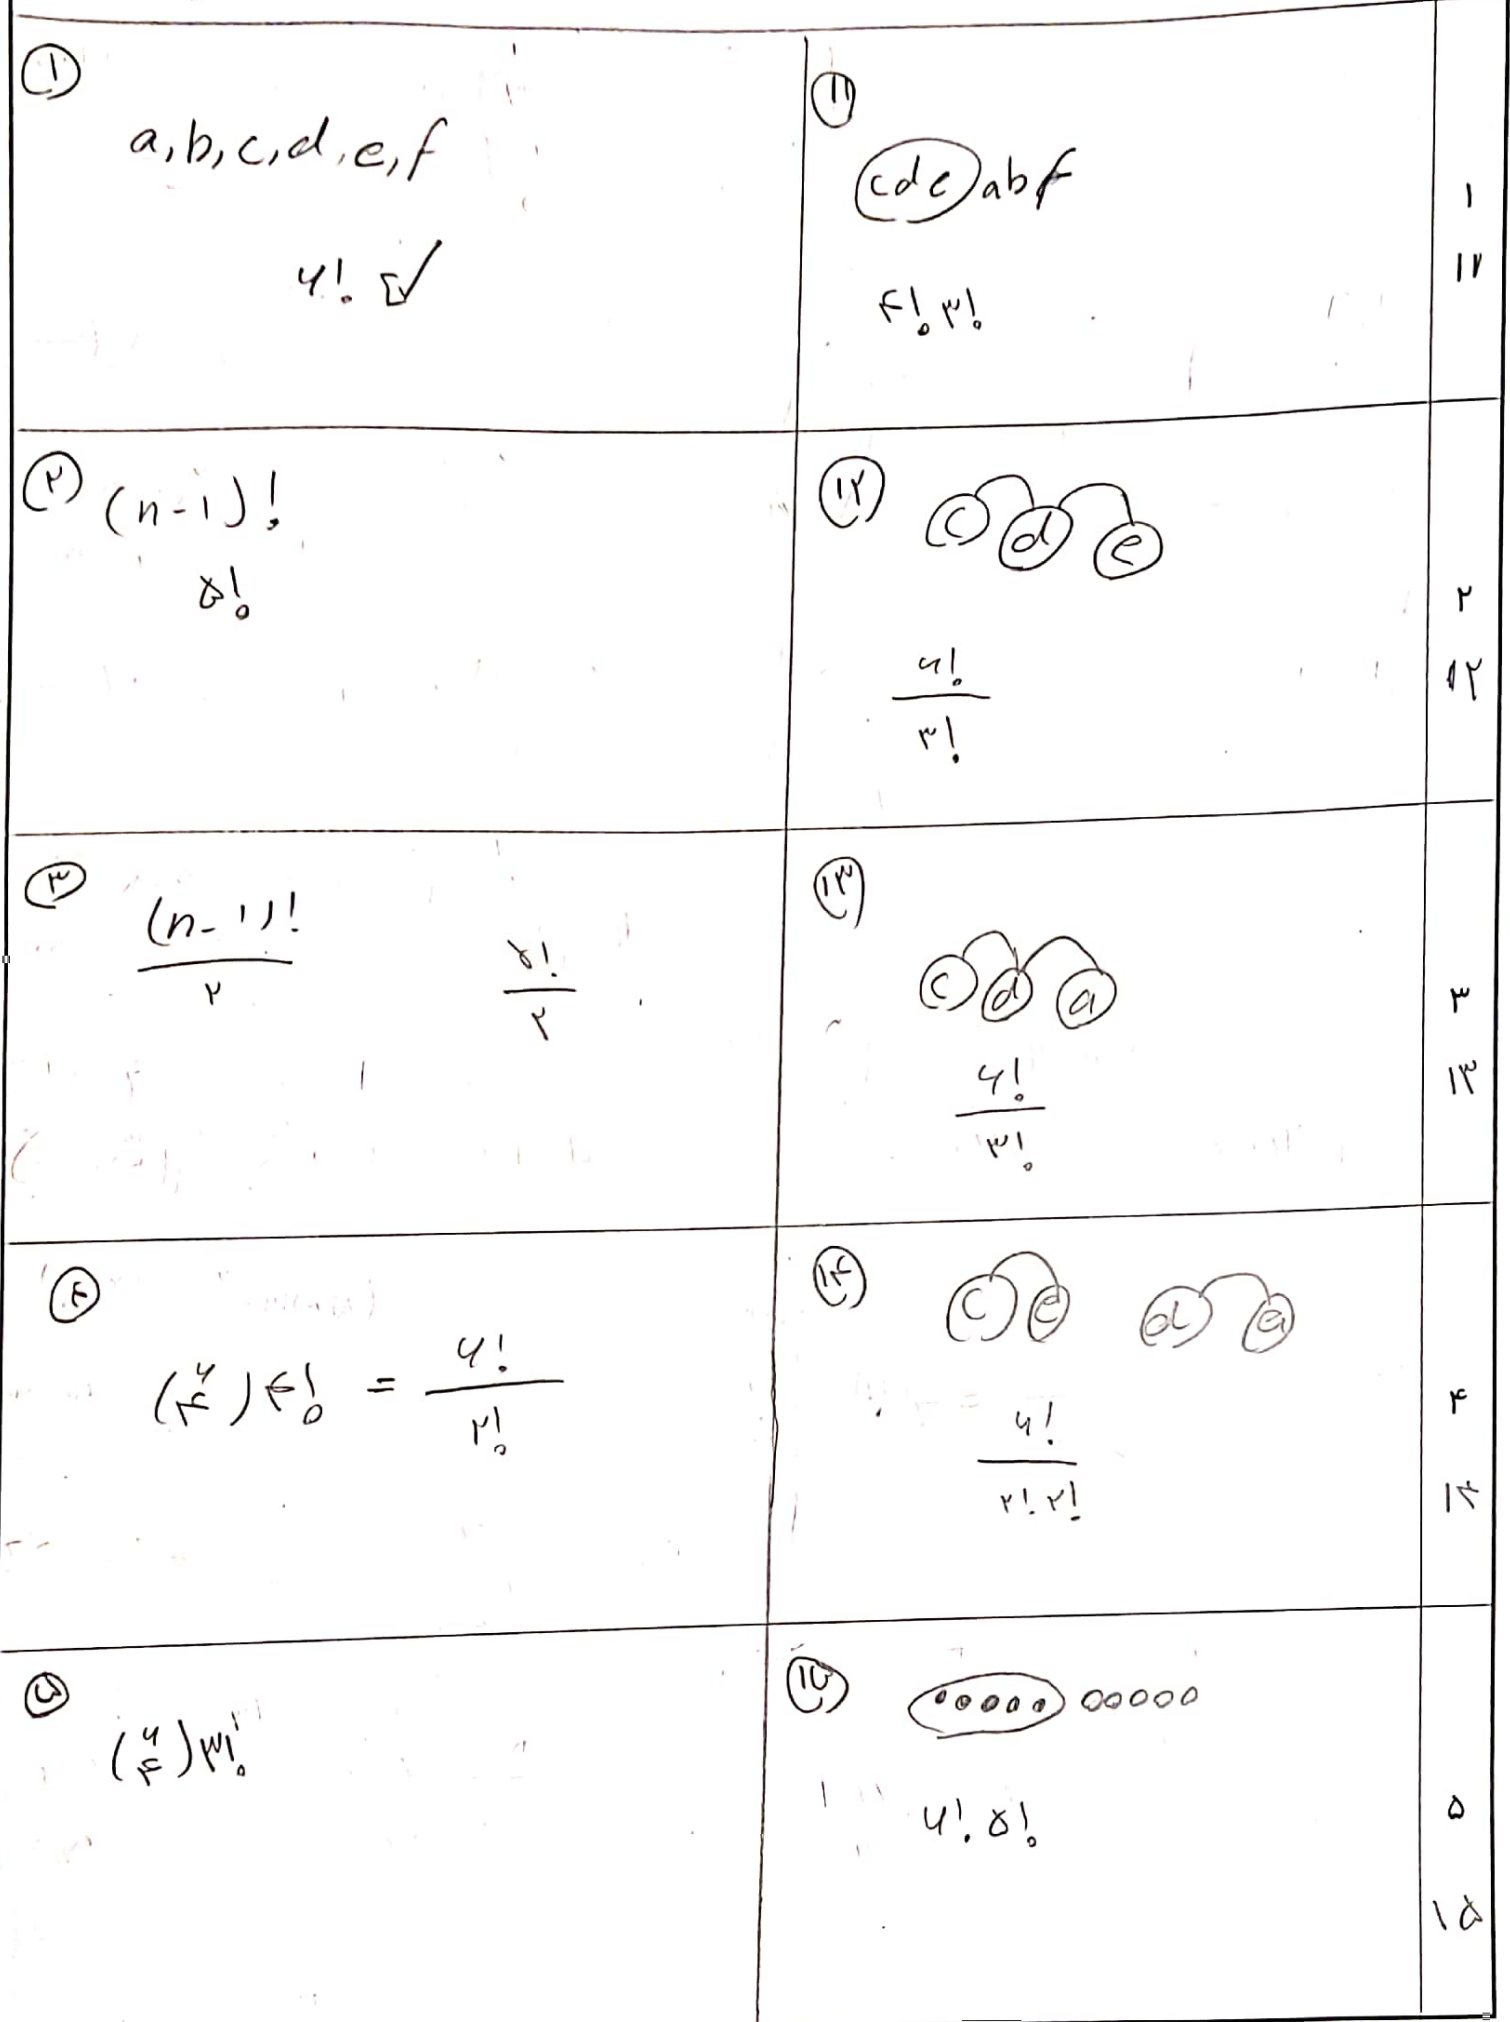 ۱
a, b, c, d, e, f
۶!
۲
(n-۱)!
۵!
۳
(n-۱)!
۲
۵!
۲
۴
(۶ ۴) ۴! = ۶!
۲!
۵
(۶ ۴) ۳!
۱۱
cde abf
۴! ۳!
۱۲
c d e
۶!
۳!
۱۳
c d a
۶!
۳!
۱۴
c e d a
۶!
۲! ۲!
۱۵
۶! ۵!
۱
۱۱
۲
۱۲
۳
۱۳
۴
۱۴
۵
۱۵